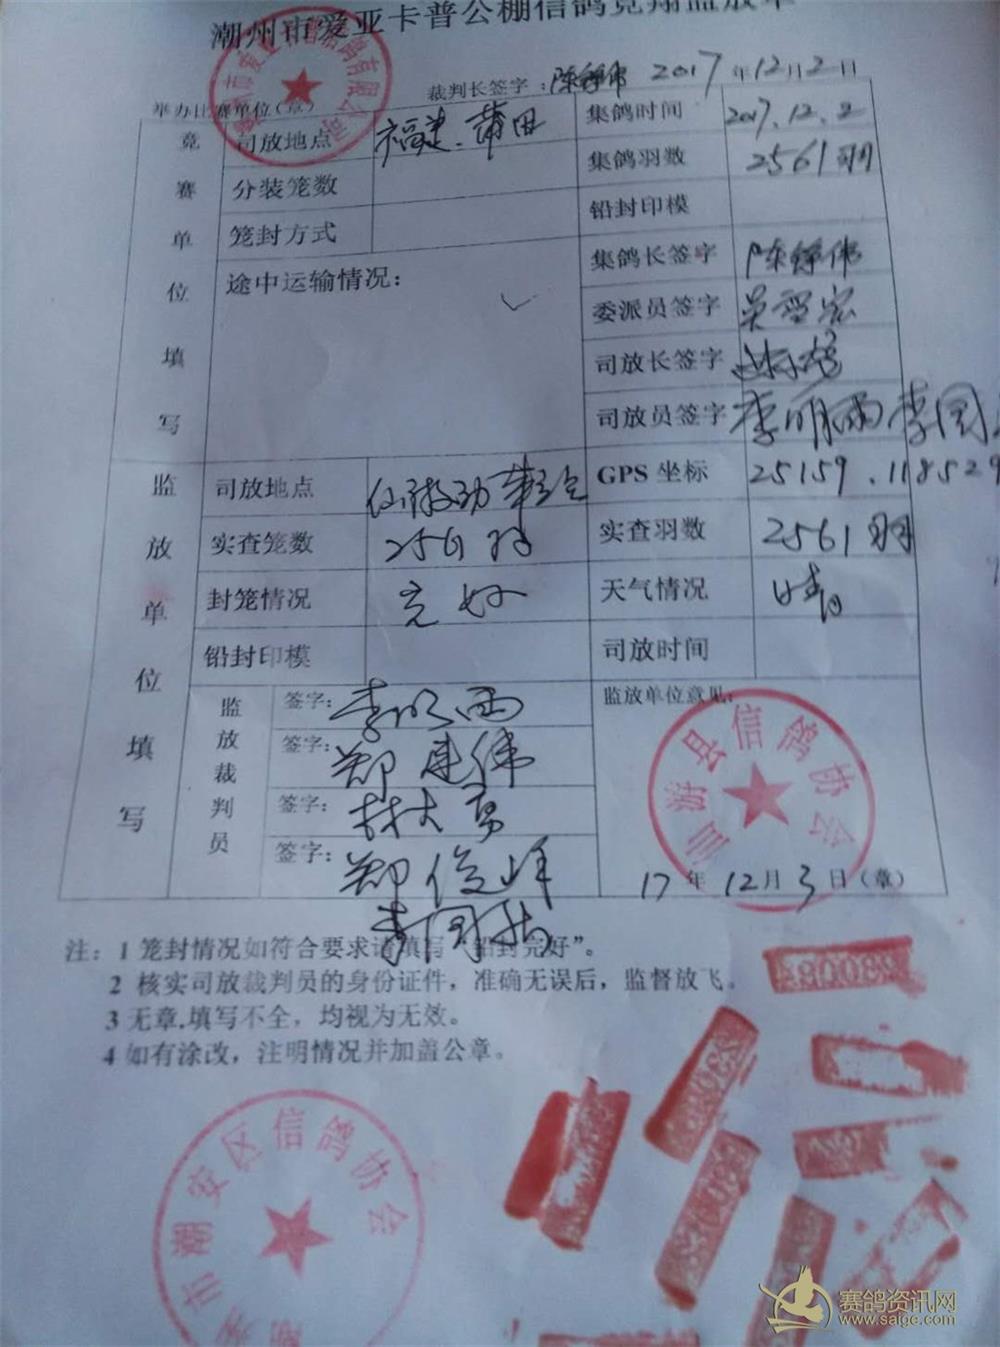 潮州市爱亚卡普公棚信鸽竞翔监放单
裁判长签字：陈铮伟 2017年12月2日
举办比赛单位（章）
竞赛单位填写
司放地点 福建.莆田 集鸽时间 2017.12.2
分装笼数 集鸽羽数 2561羽
笼封方式 铅封印模
途中运输情况： 集鸽长签字 陈铮伟
委派员签字
司放长签字
司放员签字 李明雨 李国
监放单位填写
司放地点 仙游 GPS 坐标 25159.118529
实查笼数 2561羽 实查羽数 2561羽
封笼情况 完好 天气情况 晴
铅封印模 司放时间
监放裁判员 签字：李明雨 监放单位意见：
签字：郑建伟
签字：林大勇
签字：郑俊峰
李国
17年12月3日（章）
仙游县信鸽协会
注：1 笼封情况如符合要求请填写“铅封完好”。
2 核实司放裁判员的身份证件，准确无误后，监督放飞。
3 无章.填写不全，均视为无效。
4 如有涂改，注明情况并加盖公章。
市潮安区信鸽协会
赛鸽资讯网
www.saige.com